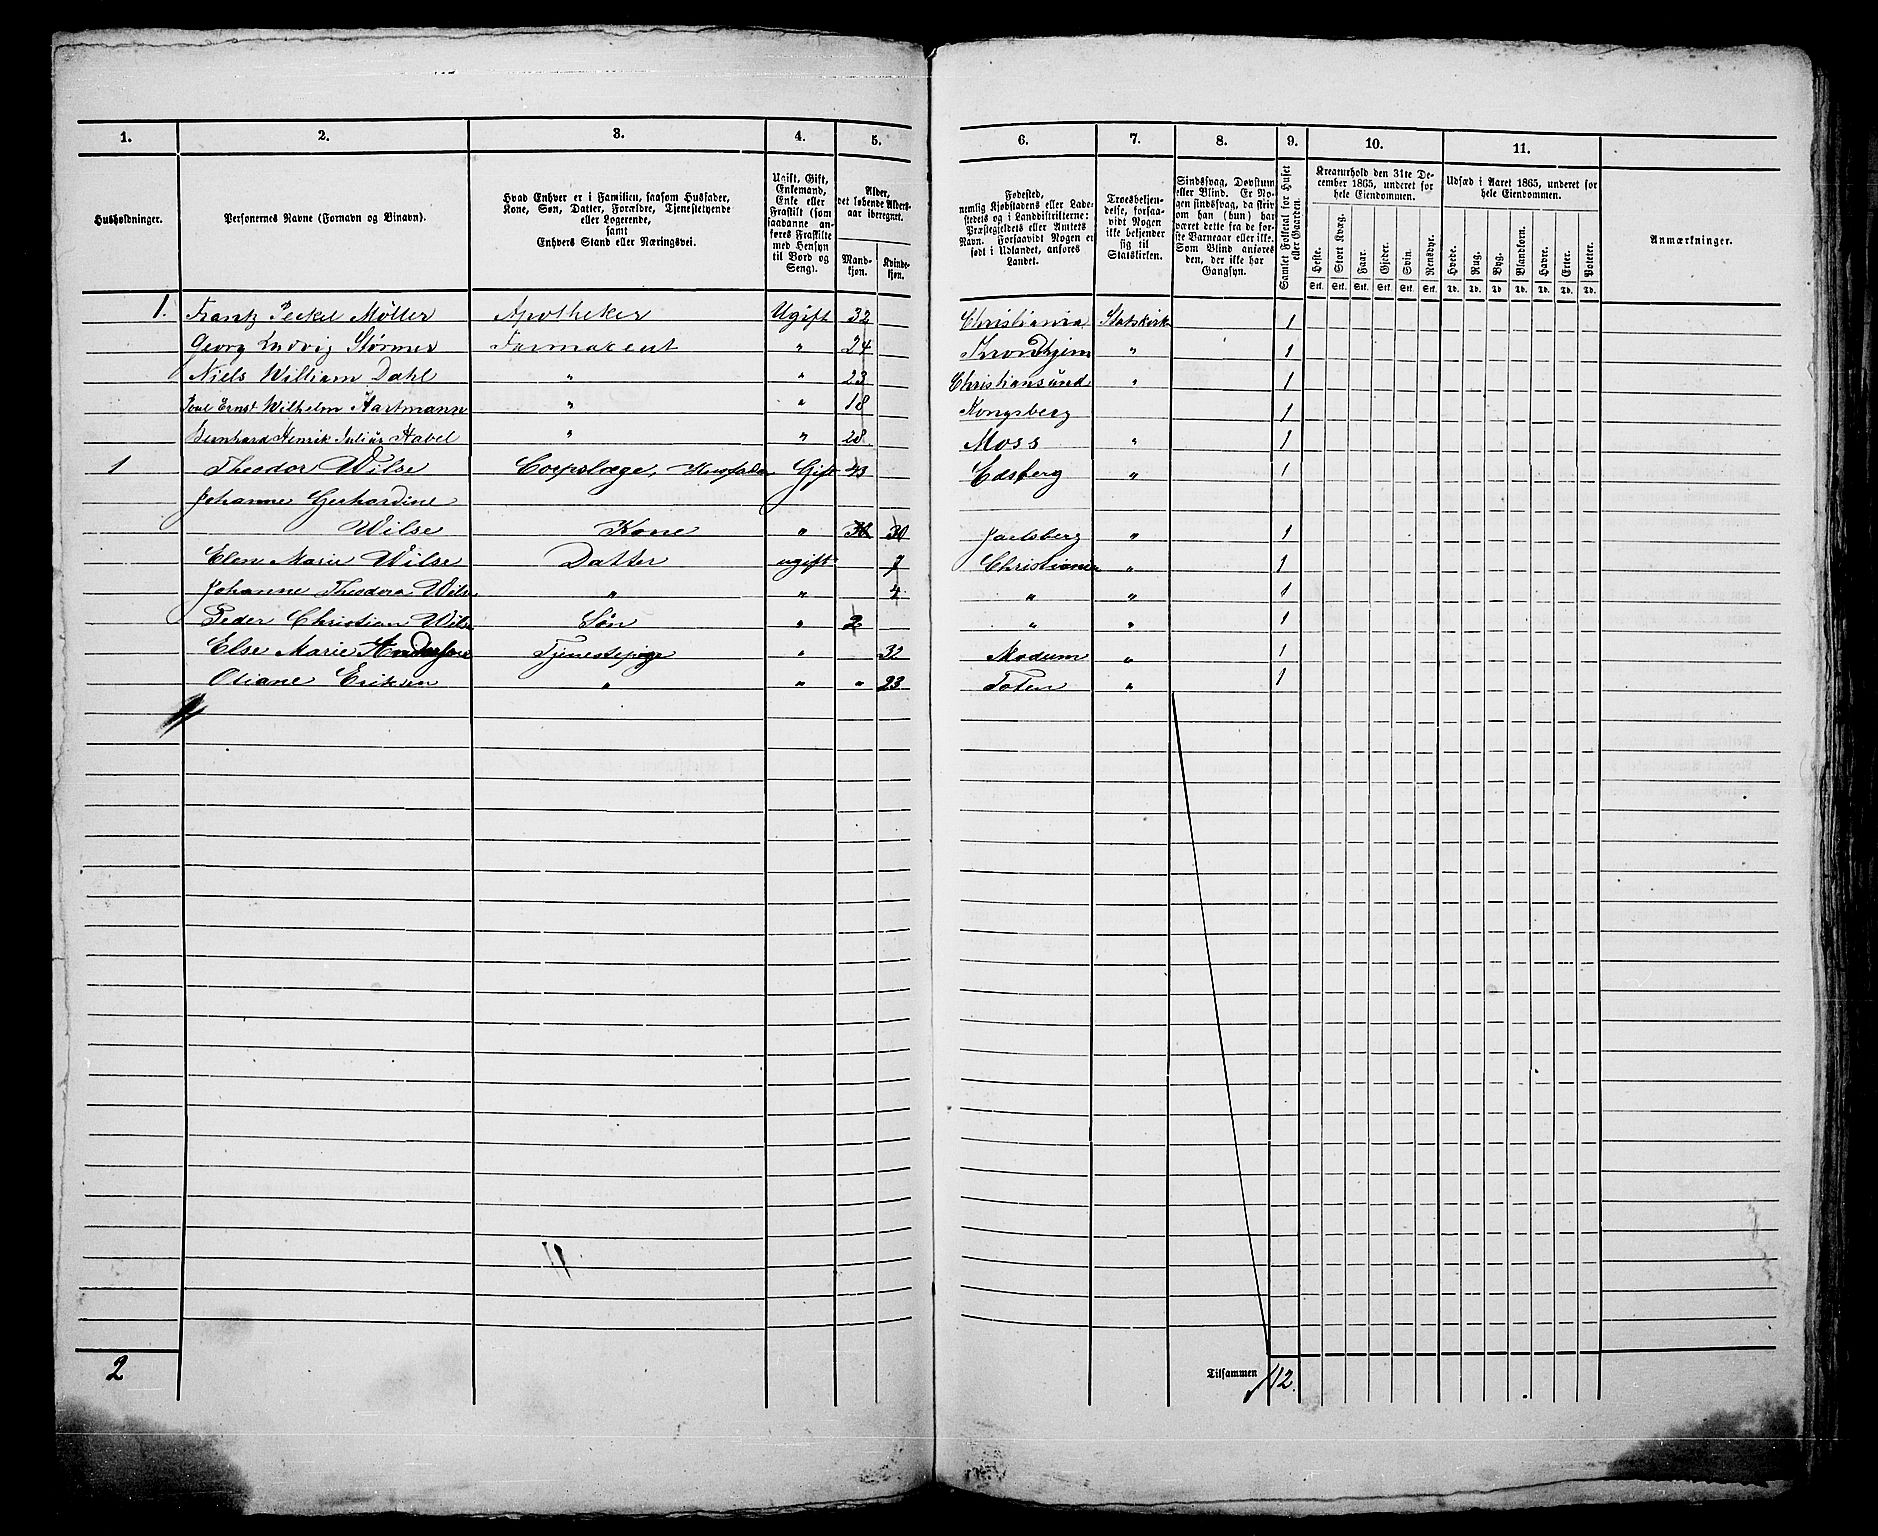 1. 2. 3. 4. 5. 6. 7. 8. 9. 10. 11.
Husholdninger.
Personernes Navne (Fornavn og Binavn).
Hvad Enhver er i Familien, saasom Husfader,
Kone, Søn, Datter, Forældre, Tjenestetyende
eller Logerende,
samt
Enhvers Stand eller Næringsvei.
Ugift, Gift,
Enkemand,
Enke eller
Fraskilt (som
saadanne an-
føres Fraskilte
med Hensyn
til Bord og
Seng).
Alder,
det løbende Alders-
aar iberegnet.
Mand-
kjøn.
Kvinde-
kjøn.
Fødested,
nemlig Kjøbstadens eller Lade-
stedets og i Landdistrikterne:
Præstegjeldets eller Amtets
Navn. Forsaavidt Nogen er
født i Udlandet, anføres
Landet.
Troesbekjen-
delse, forsaa-
vidt Nogen
ikke bekjender
sig til
Statskirken.
Sindssvag, Døvstum
eller Blind. Er No-
gen sindssvag, da skriv
om han (hun) har
været dette fra de før-
ste Barneaar eller ikke.
Som Blind anføres
den, der ikke har
Gangsyn.
Samlet Folketal for Huset
eller Gaarden.
Kreaturhold den 31te De-
cember 1865, underet for
hele Eiendommen.
Heste. Stort Kvæg. Faar. Gjeder. Svin. Rensdyr.
Stk. Stk. Stk. Stk. Stk. Stk.
Udsæd i Aaret 1865, underet for
hele Eiendommen.
Hvede. Rug. Byg. Blandkorn. Havre. Erter. Poteter.
Td. Td. Td. Td. Td. Td. Td.
Anmærkninger.
1. Frantz Peckel Møller Apotheker Ugift 32 Christiania Statskirk 1
Georg Ludvig Størmer Farmaceut " 24 Trondhjem " 1
Niels William Dahl " " 23 Christiansund " 1
Ernst Wilhelm Hartmann " " 18 Kongsberg 1
Bernhard Henrik Julius Habel " " 28 Moss " 1
1 Theodor Wilse Corpslæge, Gift 43 Edsberg " 1
Johanne Gerhardine
Wilse Kone " 30 30 Jarlsberg " 1
Elen Marie Wilse Datter ugift 7 Christiania " 1
Johanne Theodora Wilse " " 4 " " 1
Peder Christian Wilse Søn " 2 " " 1
Else Marie Andersen Tjenestepige " 32 Modum " 1
Oliane Eriksen " " " 23 Toten " 1
2
Tilsammen 12.